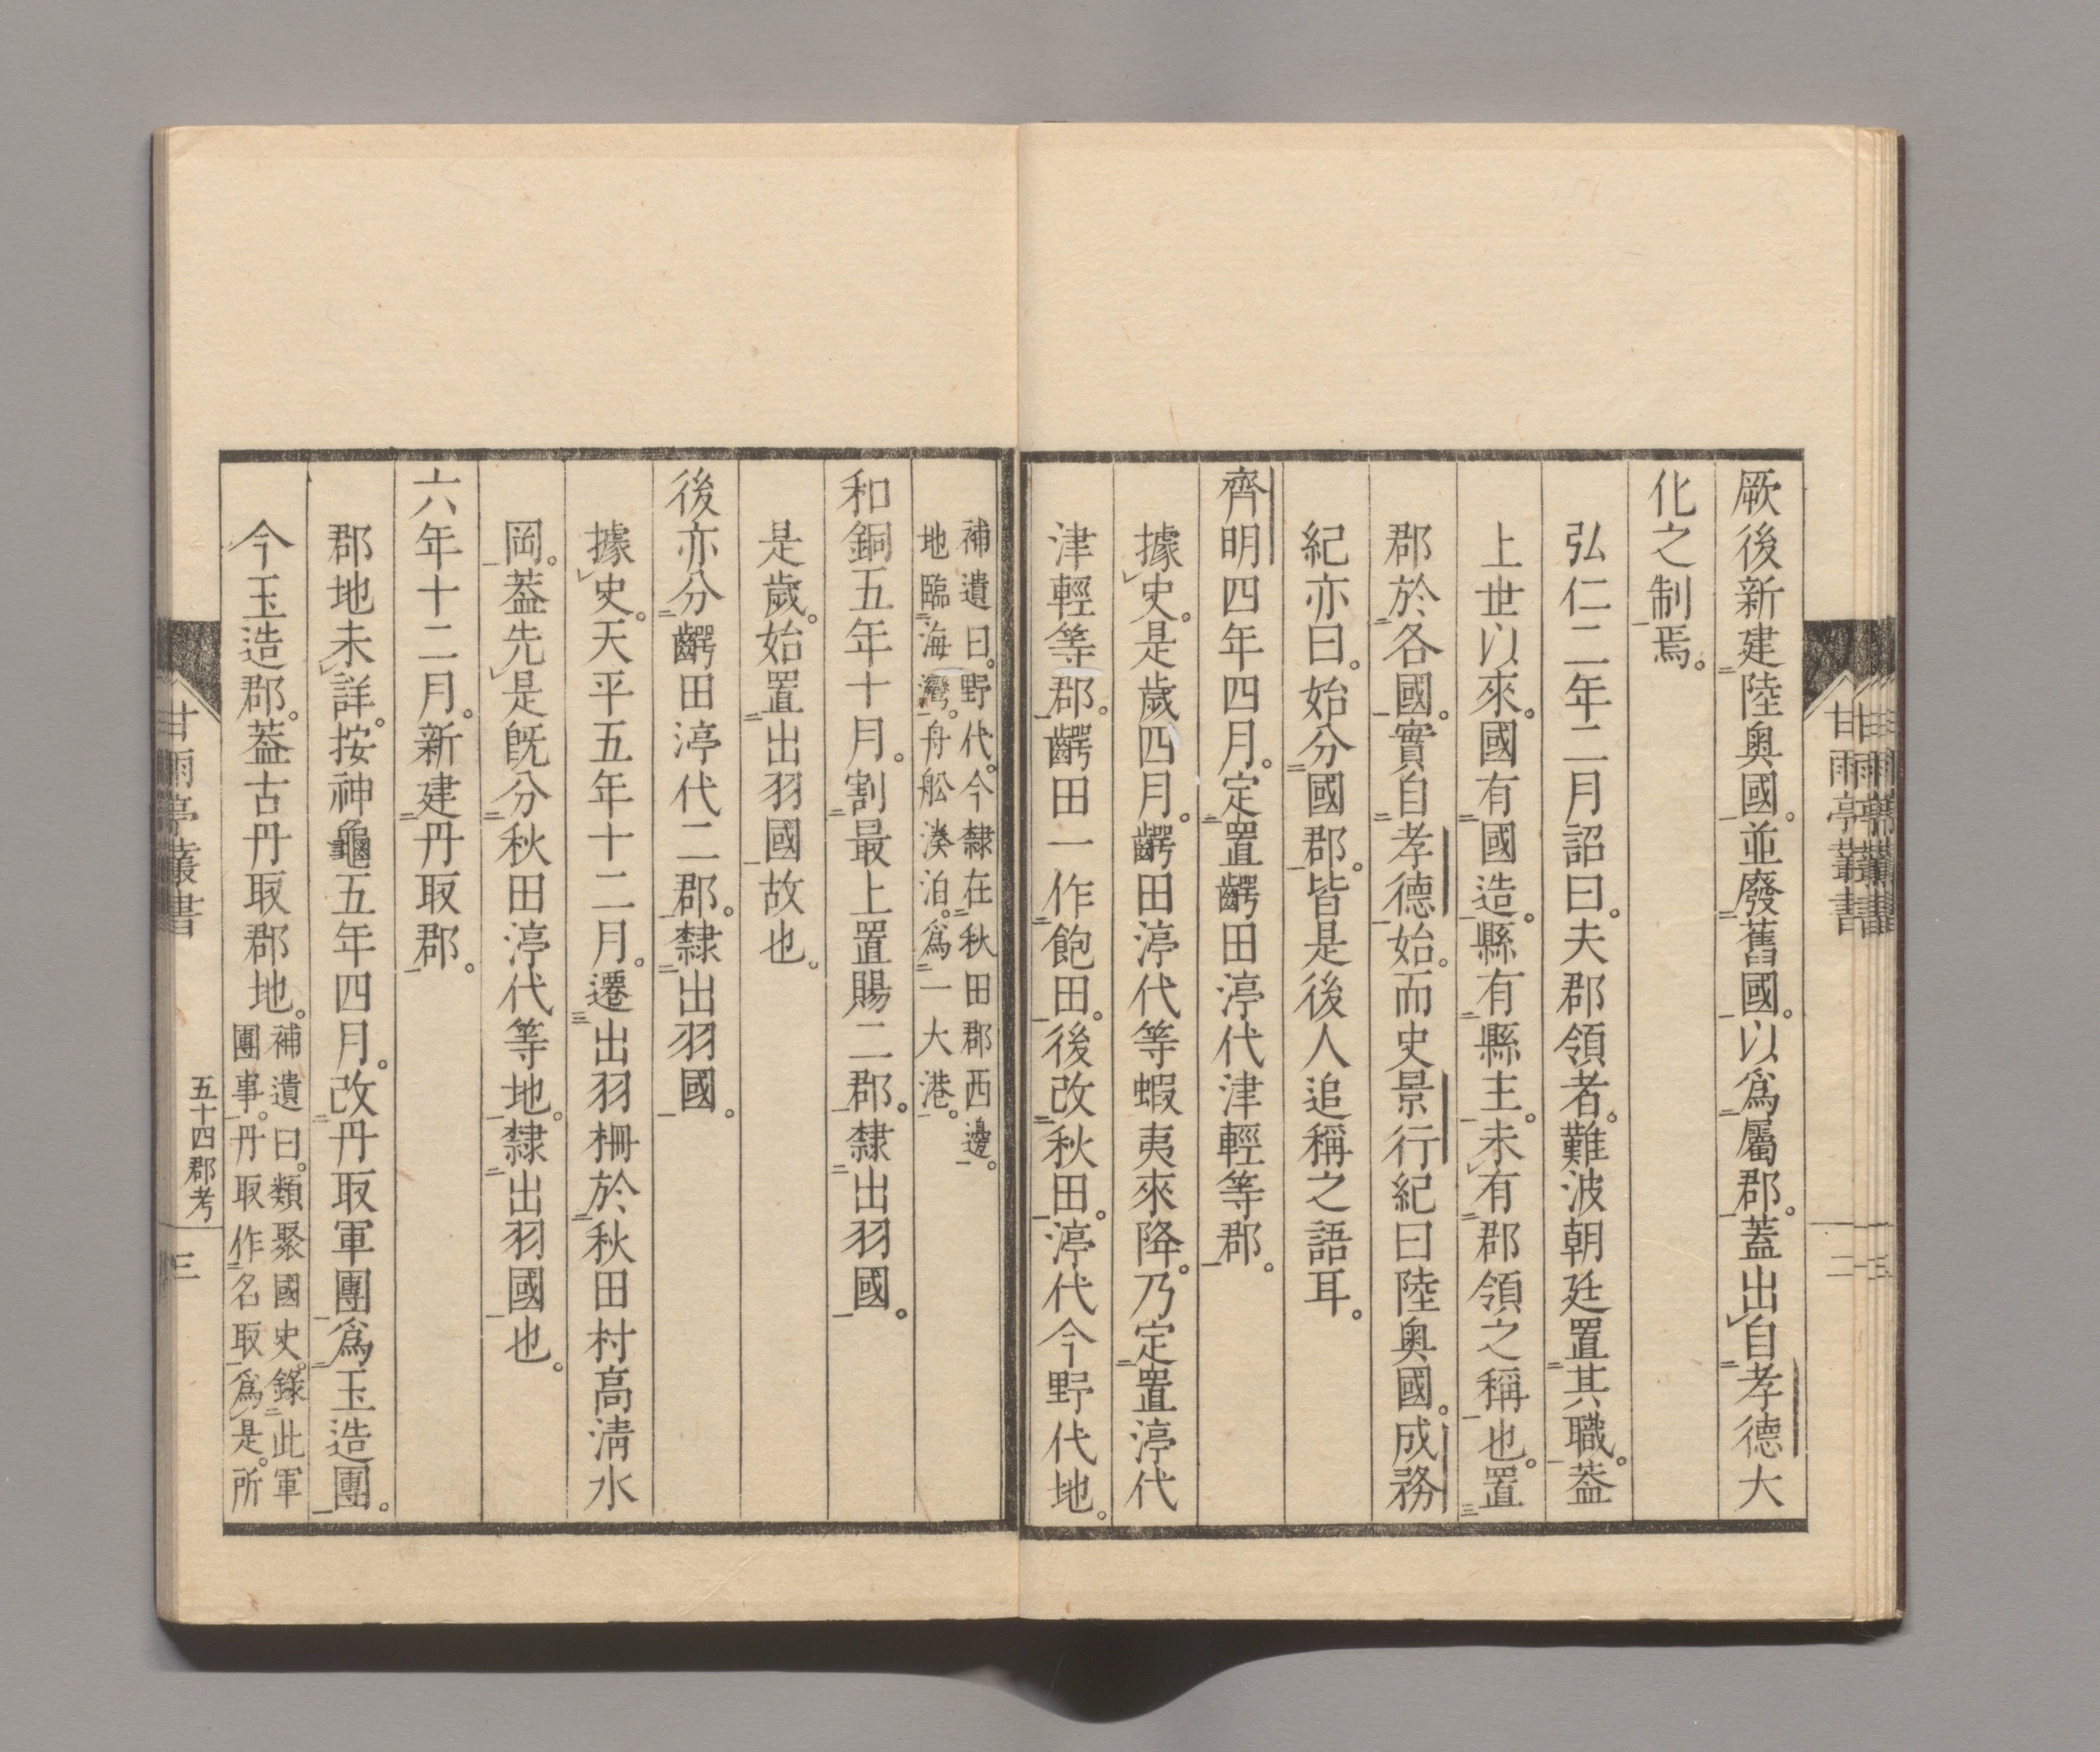 厥後新建陸奥國。並廢舊國。以爲屬郡。蓋出自孝德大
化之制焉。
弘仁二年二月詔曰。夫郡領者。難波朝廷置其職。葢
上世以來。國有國造。縣有縣主。未有郡領之稱也。置
郡於各國。實自孝德始。而史景行紀曰陸奥國。成務
紀亦曰。始分國郡。皆是後人追稱之語耳。
齊明四年四月。定置齶田渟代津輕等郡。
據史。是歲四月。齶田渟代等蝦夷來降。乃定置渟代
津輕等郡。齶田一作飽田。後改秋田。渟代今野代地。
補遺曰。野代。今隸在秋田郡西邊。
地臨海灣。舟舩湊泊。爲一大港。
和銅五年十月。割最上置賜二郡。隸出羽國。
是歲。始置出羽國故也。
後亦分齶田渟代二郡。隸出羽國。
據史。天平五年十二月。遷出羽柵於秋田村高淸水
岡。葢先是旣分秋田渟代等地。隸出羽國也。
六年十二月。新建丹取郡。
郡地未詳。按神龜五年四月。改丹取軍團爲玉造團。
今玉造郡。葢古丹取郡地。
補遺曰。類聚國史。錄此軍
團事。丹取作名取。爲是。所
甘雨亭叢書
五十四郡考
三
甘雨亭叢書
二